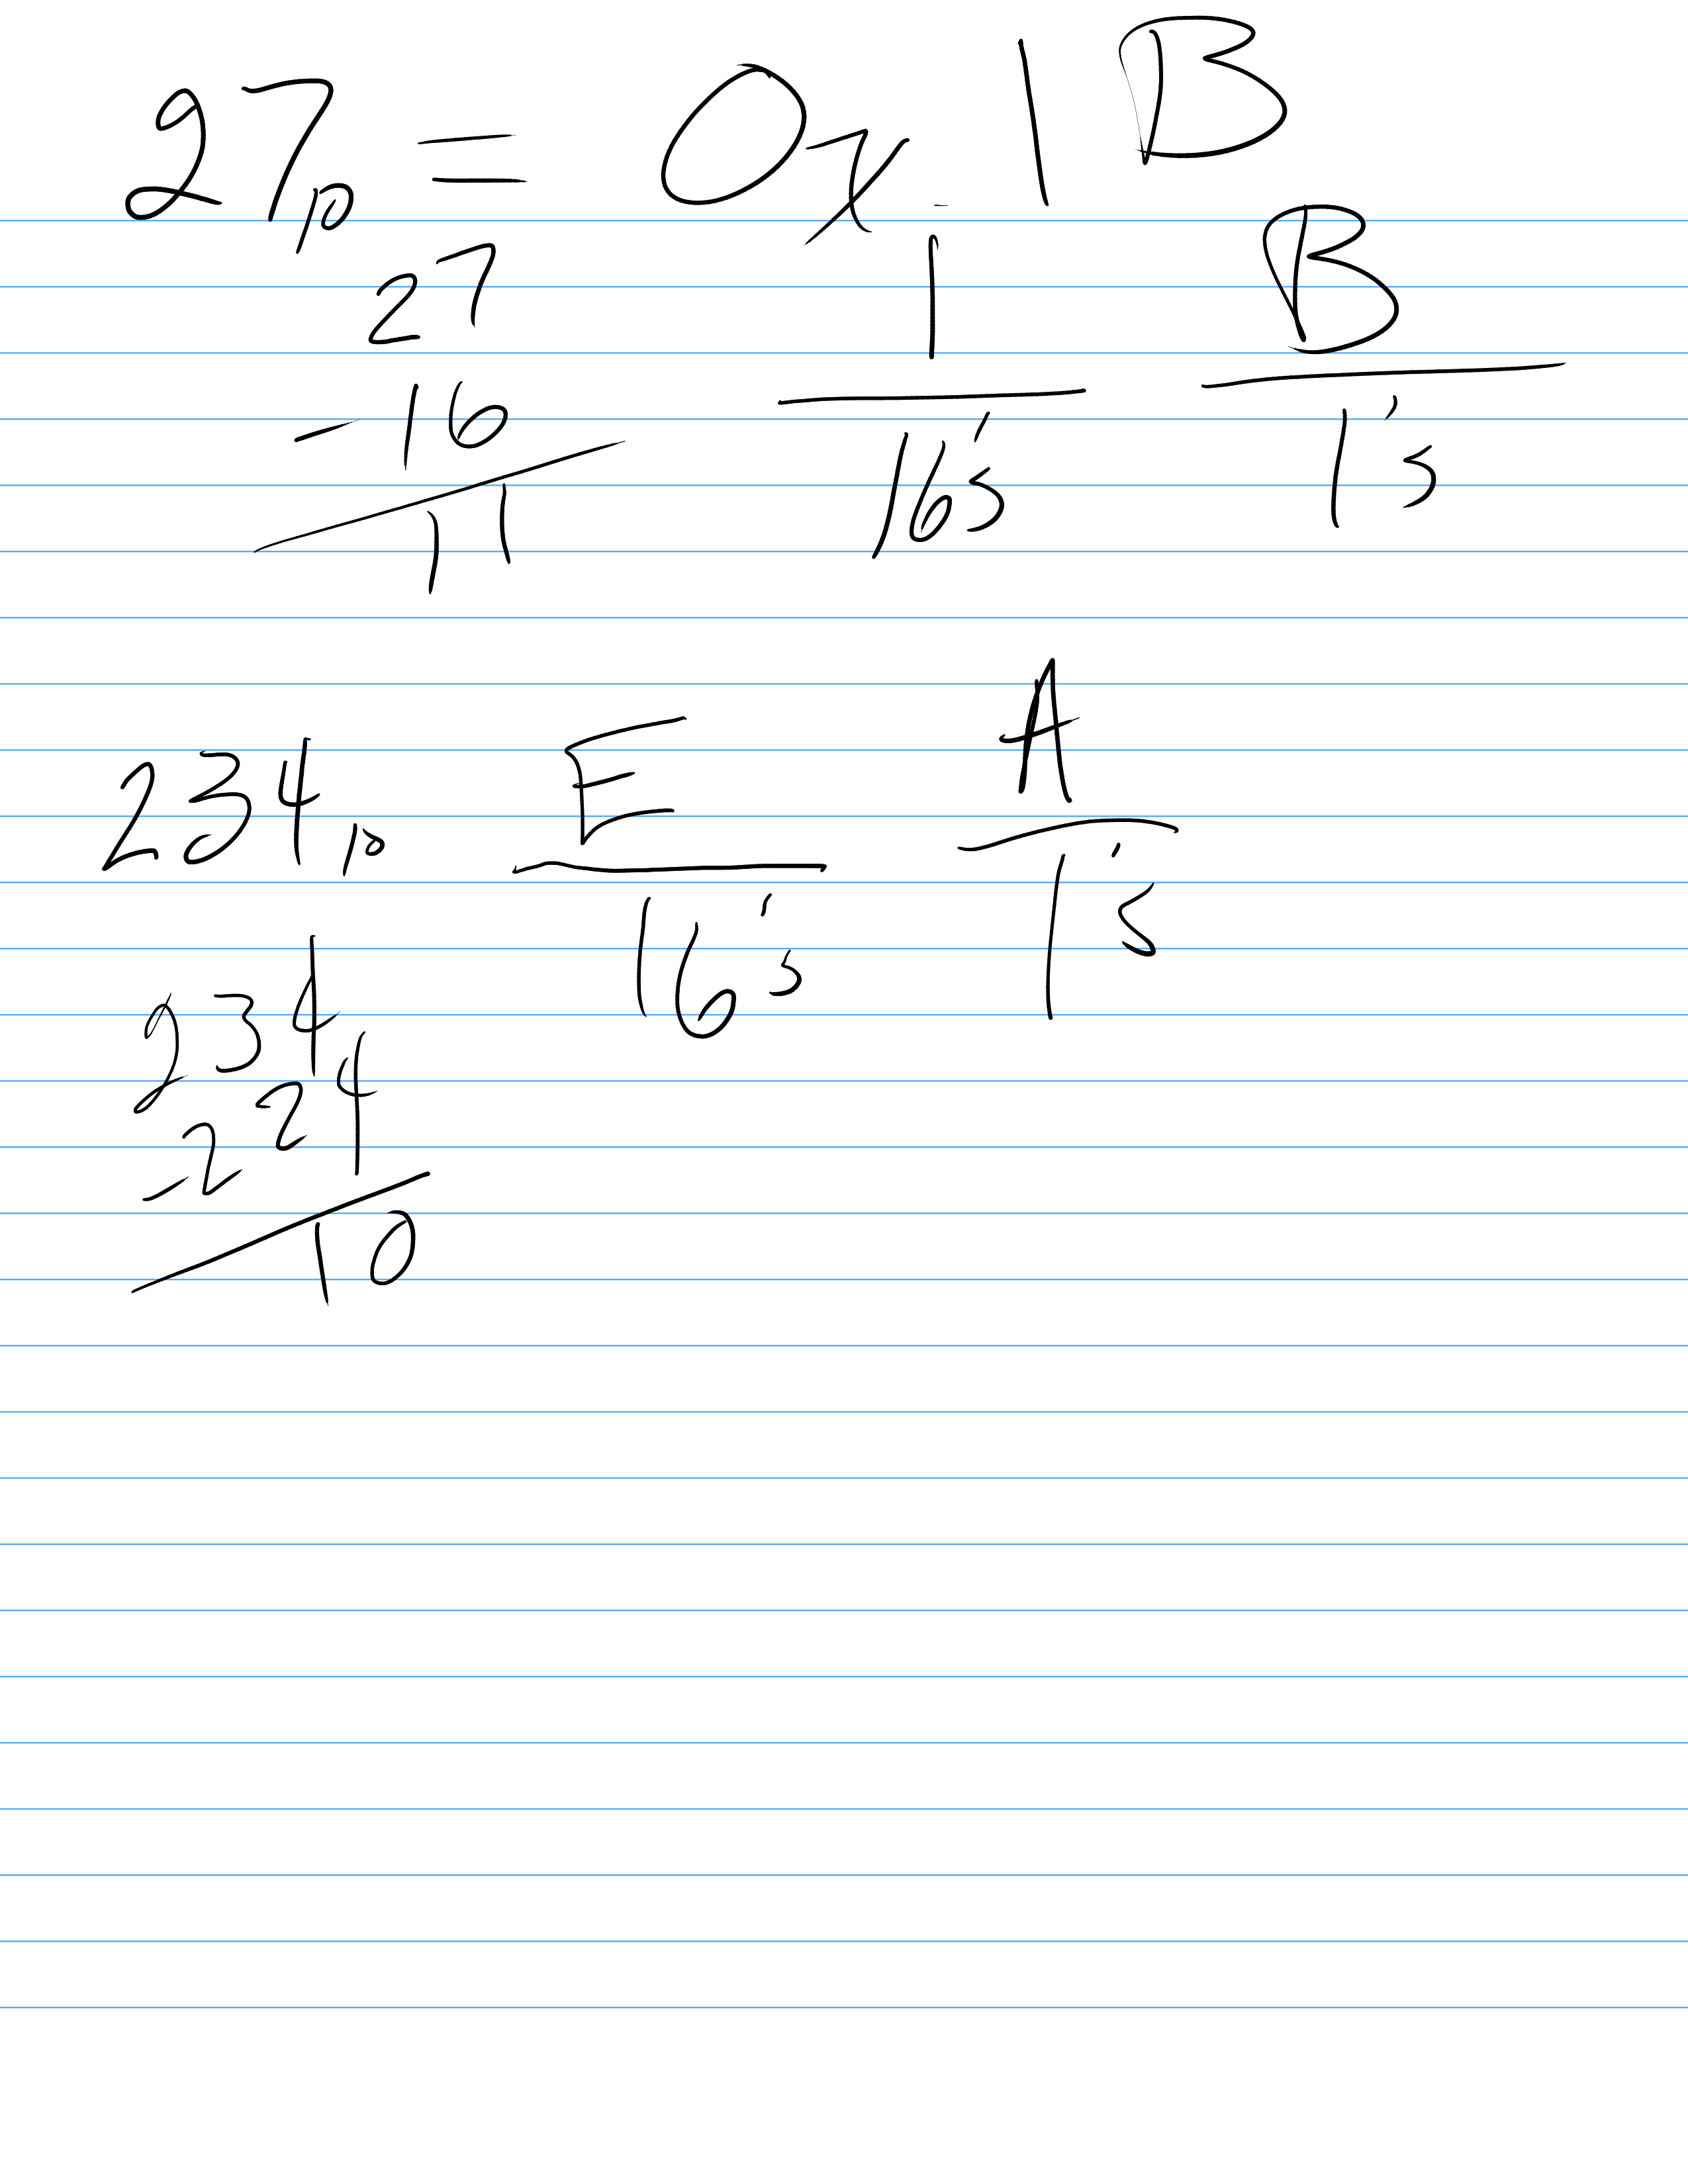 27₁₀ = 0x 1B
27 1 B
- 16 16's 1's
11
234₁₀ E A
16's 1's
234
- 224
10